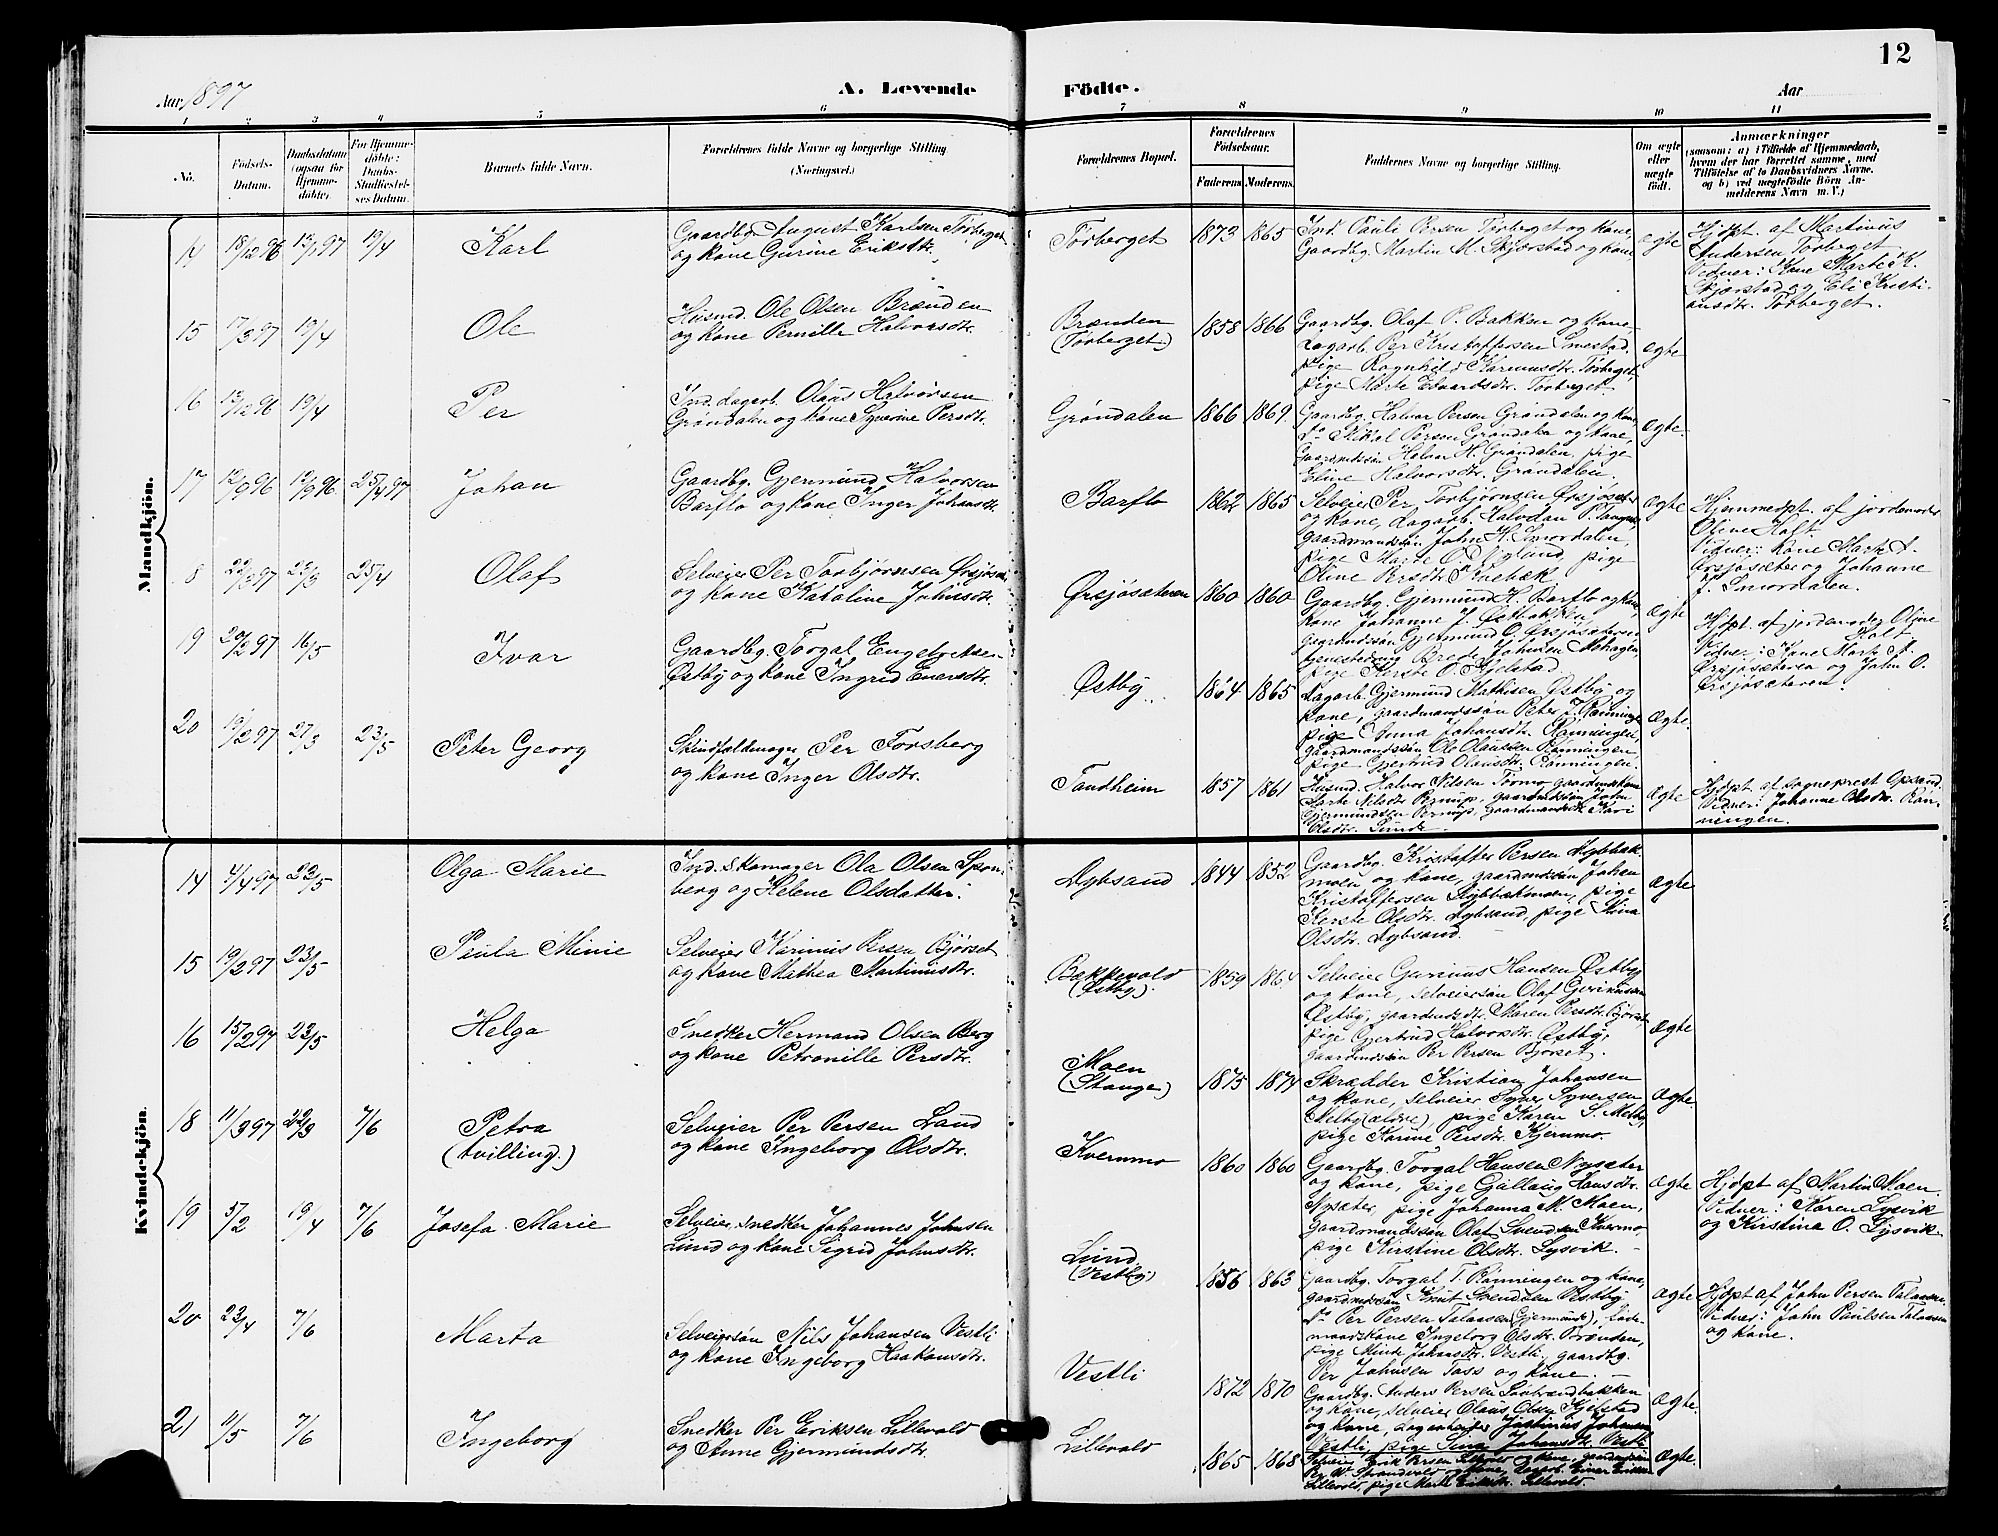 12
Aar 1897
A. Levende
Födte.
Aar
1 2 3 4 5 6 7 8 9 10 11
No.
Födsels-Datum.
Daabsdatum (ogsaa för Hjemmedöbte).
For Hjemmedöbte: Daabs-Stadfæstelses Datum.
Barnets fulde Navn.
Forældrenes fulde Navne og borgerlige Stilling. (Næringsvei.)
Forældrenes Bopæl.
Forældrenes Födselsaar.
Faderens Moderens.
Faddernes Navne og borgerlige Stilling.
Om ægte eller uægte födt.
Anmærkninger
(saasom: a) i Tilfælde af Hjemmedaab, hvem der har forrettet samme, med Tilföielse af to Daabsvidners Navne, og b) ved uægtefödte Börn Anmelderens Navn m. V.)
Mandkjön.
14 18/12 96 13/1 97 19/4 Karl
Gaardbg. August Karlsen Törberget
og kone Gurine Eriksdtr.
Törberget 1873 1865
Ind. Pauli Persen Törberget og kone,
Gaardbg. Martin M. Skjærstad og kone
ægte
Hjdpt. af Martinus
Andersen Törberget
Vidner: Kone Marte K.
Skjærstad og Eli Kristi-
ansdtr. Törberget.
15 17/3 97 19/4 Ole
Husmd. Ole Olsen Brænden
og kone Pernille Halvorsdtr.
Brænden
(Törberget)
1858 1866
Gaardbg. Olaf P. Bakken og kone,
Dagarb. Per Kristoffersen Smestad,
pige Ragnhild Karinusdtr. Törberget,
pige Marte Edvardsdtr. Törberget.
ægte
16 13/12 96 19/4 Per
Ind. dagarb. Olaus Halvorsen
Gröndalen og kone Syverine Persdtr.
Gröndalen 1866 1869
Gaardbg. Halvor Persen Gröndalen og kone,
do Mikal Persen Gröndalen og kone,
Gaardmdssön Halvor H. Gröndalen, pige
Eline Halvorsdtr. Gröndalen
ægte.
17 12/9 96 13/9 96 25/4 97 Johan
Gaardbg. Gjermund Halvorsen
Barflo og kone Inger Johansdtr.
Barflo 1862 1865
Selveier Per Torbjörnsen Örsjöseter
og kone, dagarb. Halvdan P. Tangen,
gaardmandssön John H. Smordalen,
pige Marte O. Nylund, pige
Oline Persdtr. Knebæk
ægte
Hjemmedpt. af jordemoder
Oline Holt.
Vidner: Kone Marte A.
Örsjösæter og Johanne
J. Smordalen.
8 22/3 97 23/3 25/4 Olaf
Selveier Per Torbjörnsen Örsjösæ
og kone Kataline Johnsdtr.
Örsjösæteren 1860 1860
Gaardbg. Gjermund H. Barflo og kone,
kone Johanne J. Östbakken,
gaardmdssön Gjermund O. Örsjösæteren
tjenestedreng Brede Johnsen Mohagen,
pige Kerste O. Kjelstad
ægte
Hjdpt. af jordemoder Oline
Holt
Vidner: Kone Marte A.
Örsjösæteren og John O.
Örsjösæteren.
19 20/2 97 16/5 Ivar
Gaardbg. Torgal Engebretsen
Östby og kone Ingrid Enersdtr.
Östby 1864 1865
Dagarb. Gjermund Mathisen Östby og
kone, gaardmandssön Peter J. Rönningen
pige Anna Johansdtr. Rönningen,
gaardmandssön Ole Olaussen Rönningen
pige Gjertrud Olausdtr. Rönningen.
ægte.
20 19/2 97 21/3 23/5 Peter Georg
Skindfeldmager Per Forsberg
og kone Inger Olsdtr.
Tandheim 1857 1861
Husmd. Halvor Nilsen Törmo, gaardmdskone
Marte Nilsdtr. Bernup, gaardmdssön John
Gjermundsen Bernup, gaardmandsdtr. Kari
Olsdtr. Sunde.
ægte
Hjdpt. af sogneprest Opsand.
Vidner: Johanne Olsdtr. Rön-
ningen.
Kvindekjön.
14 4/4 97 23/5 Olga Marie
Ind. skomager Ola Olsen Spon-
berg og Helene Olsdatter.
Dybsand 1844 1852
Gaardbg. Kristoffer Persen Dybbæk-
moen og kone, gaardmdssön Johan
Kristoffersen Dybbækmoen, pige
Kerste Olsdtr. Dybsand, pige Stina
Olsdtr. Dybsand.
ægte
15 19/2 97 23/5 Paula Minie
Selveier Karinus Persen Björset
og kone Mathea Martinusdtr.
Bakkevold
(Östby)
1859 1864
Selveier Gurinus Hansen Östby
og kone, selveiersön Olaf Gurinussen
Östby, gaardmdsdtr. Maren Persdtr. Björset,
pige Gjertrud Halvorsdtr. Östby,
gaardmdssön Per Persen Bjorset.
ægte
16 15/2 97 23/5 Helga
Snedker Hermand Olsen Berg
og kone Petronille Persdtr.
Moen
(Stange)
1875 1874
Skrædder Kristian Johansen
og kone, selveier Syver Syversen
Melby (ældre), pige Karen S. Melby,
pige Karine Persdtr. Kjernmo.
ægte.
18 11/3 97 22/3 7/6 Petra
(tvilling.)
Selveier Per Persen Lund
og kone Ingeborg Olsdtr.
Kvernmo 1860 1860
Gaardbg. Torgal Hansen Nysæter
og kone, pige Gullaug Hansdtr.
Nysæter, pige Johanna M. Moen,
gaardmandssön Olaf Svendsen Kvermo,
pige Kirstine Olsdtr. Lysvik.
ægte
Hjdpt af Martin Moen.
Vidner: Karen Lysvik
og Kirstina O. Lysvik.
19 5/2 19/4 7/6 Josefa Marie
Selveier, snedker Johannes Johnsen
Lund og kone Sigrid Johnsdtr.
Lund
(Vestby)
1856 1863
Gaardbg. Torgal T. Rönningen og kone,
gaardmdssön Knut Svendsen Östby
do Per Persen Talaasen (Gjermunds),
maadskone Ingeborg Olsdtr. Brænden,
pige Minda Johansdtr. Vestli, gaardbg.
Per Johnsen Tass og kone.
ægte
Hjdpt af John Persen Talaasen.
Vidner: John Paulsen Talaasen
og kone.
20 23/4 7/6 Marta
Selveiersön Nils Johansen Vestli
og kone Ingeborg Haakonsdtr.
Vestli 1872 1870
Gaardbg. Anders Persen Lövbrændbakken
og kone, selveier Olaus Olsen Kjelstad
og kone, dagarbeider Justinus Johansen
Vestli, pige Lina Johansdtr. Vestli
ægte.
21 11/5 7/6 Ingeborg
Snedker Per Eriksen Lillevold
og Anne Gjermundsdtr.
Lillevold 1865 1868
Selveier Erik Persen Lillevold og kone, gaardmdssön
Per N. Strandvold og kone, Dagarb. Einar Eriksen
Lillevold, pige Marte Eriksdtr. Lillevold.
ægte.